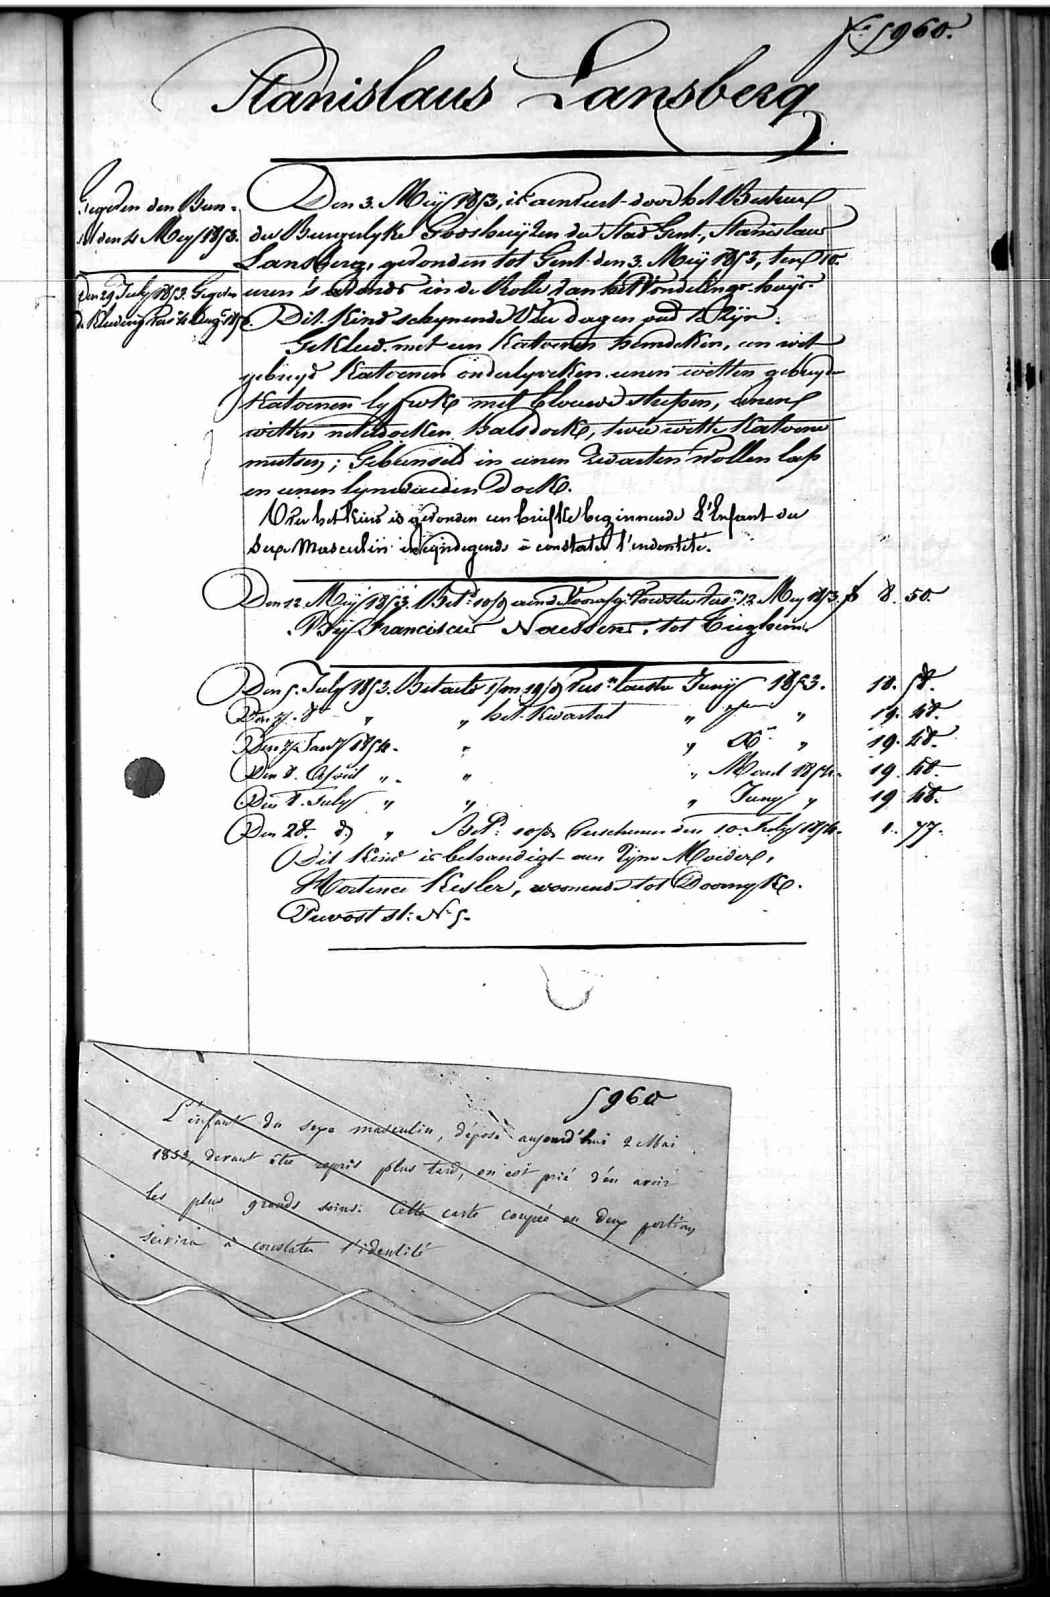 N.º 5960.
Stanislaus Lansberg
Gegeven den Bun-
del den 4 Mey 1853.
Den 29 July 1853. Gegeven
de Kleeding
Den 3. Meÿ 1853, is aenveert door het Bestuer
der Burgerlyke Godshuyzen der Stad Gent, Stanislaus
Lansberg, gevonden tot Gent den 3. Meÿ 1853, ten 10.
uren 's avonds in de Rolle van het Vondelings-huys.
Dit Kind schynende vier dagen oud te zyn.
Gekleed met een Katoenen hemdeken, een wit
gebreyd Katoenen onderlyveken eenen witten gebreyd
Katoenen lyfrok met blouwe streepen, eenen
witten neteldoeken halsdoek, twee witte Katoene
mutsen; Gebunseld in eenen zwarten wollen lap
en eenen lynwaeden doek.
Op het kind is gevonden een briefke beginnende L'Enfant du
sexe Masculin en eyndegende à constater l'identité.
Den 12 Meÿ 1853 Bet.d 12 Mey 1853 f 8. 50.
By Franciscus Naessens, tot Eeighem
Den 5. July 1853. Betaeld Junÿ 1853. 18. 58.
Den 7. 8.re " " het Kwartael " 7bre " 19. 48.
Den 7 Janÿ 1854. " " X.re " 19. 48.
Den 8. April " " " Maert 1854. 19. 48.
Den 8. July " " " Juny " 19 48.
Den 28. d.o " Bet.d verschenen den 10 July 1854. 1. 77.
Dit Kind is behandigt aen zyne Moeder,
Hortence Kesler, woonende tot Doornyk.
Prevost st: N.º 5.
5960
L'infant du sexe masculin, déposé aujourd'hui 2 Mai
1853, devant être repris plus tard, on est prié d'en avoir
les plus grands soins. Cette carte coupée en deux portions
servira à constater l'identité